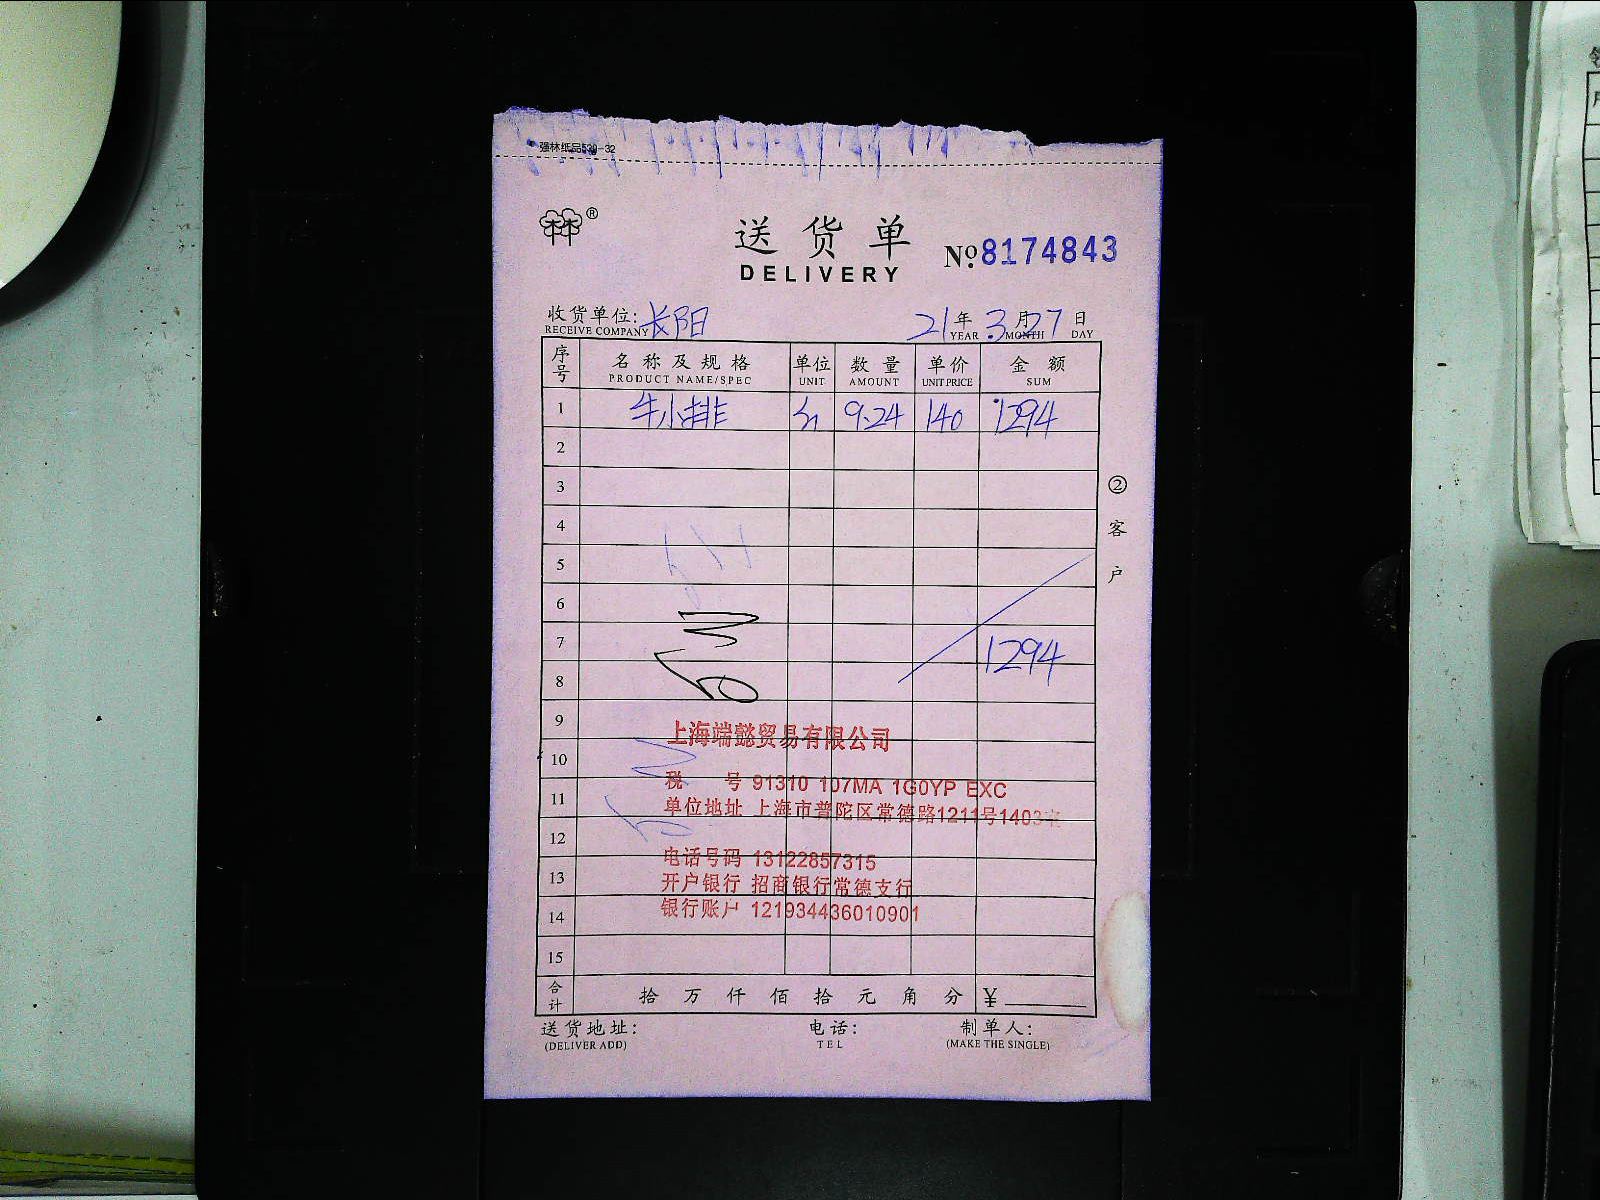 强林纸品539-32
林林®
送货单
DELIVERY
№8174843
收货单位: 长阳
RECEIVE COMPANY
21年3月27日
YEAR MONTH DAY
序号 名称及规格 单位 数量 单价 金额
PRODUCT NAME/SPEC UNIT AMOUNT UNIT PRICE SUM
1 牛小排 9.24 140 1294
2
3
4
5
6
7 1294
8
9
10
11
12
13
14
15
②客户
上海端懿贸易有限公司
税 号 91310 107MA 1G0YP EXC
单位地址 上海市普陀区常德路1211号1403室
电话号码 13122857315
开户银行 招商银行常德支行
银行账户 121934436010901
合计 拾 万 仟 佰 拾 元 角 分 ¥
送货地址: 电话: 制单人:
(DELIVER ADD) TEL (MAKE THE SINGLE)